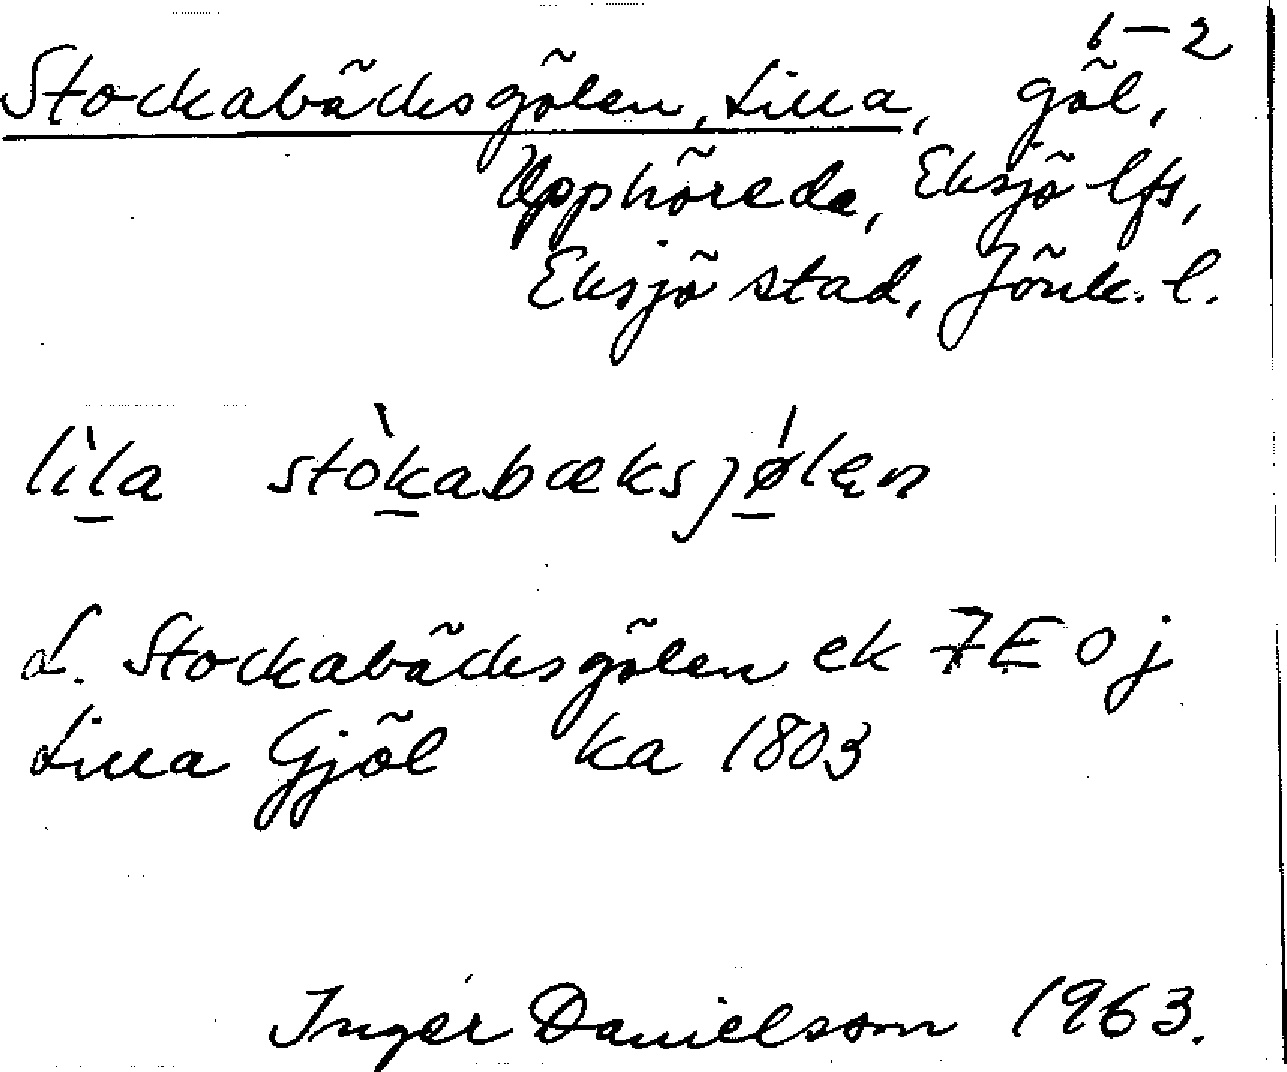 6-2
Stockabäcksgölen, Lilla, göl,
Upphöreda, Eksjö lfs,
Eksjö stad, Jönk. l.
lìla stòkabæksjǿlen
L. Stockabäcksgölen ek 7E 0j
Lilla Gjöl ka 1803
Inger Danielsson 1963.